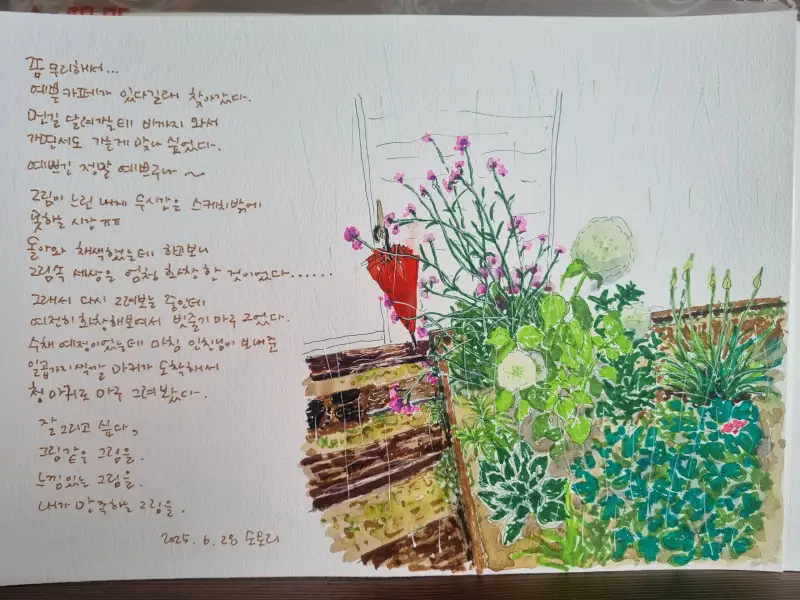 쫌 무리해서...
예쁜 카페가 있다길래 찾아갔다.
먼길 달려갔는데 비까지 와서
개면서도 가는게 맞나 싶었다.
예쁘긴 정말 예쁘구나 ~
그림이 느린 내게 두시간은 스케치밖에
못하는 시간 ㅠㅠ
돌아와 채색했는데 하고보니
그림속 세상은 엄청 화창한 것이었다......
그래서 다시 그려보는 중인데
여전히 화창해보여서 빗줄기 마구 그었다.
수채 예정이었는데 마침 인친님이 보내준
일곱가지 색깔 마카가 도착해서
청 마카로 마구 그려봤다.
잘 그리고 싶다,
그림같은 그림을.
느낌있는 그림을.
내가 만족하는 그림을.
2025. 6. 28 손토리